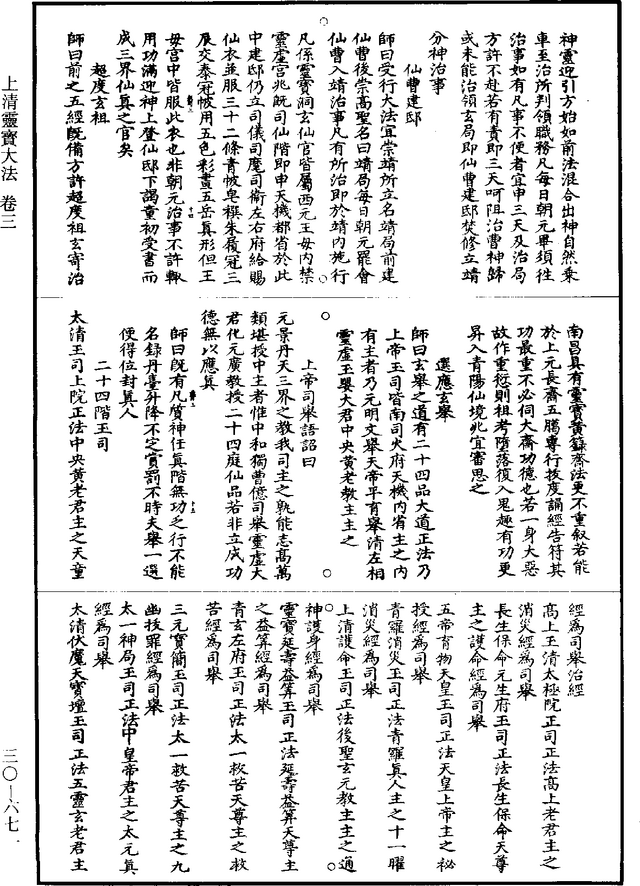 上清靈寶大法 卷三
三〇—六七一
神靈迎引方始如前法混合出神自然乘
車至治所判領職務凡每日朝元畢須往
治事如有凡事不便者宜申三天及治局
方許不赴若有責即三天呵阻治曹神歸
或未能治領玄局即仙曹建邸焚修立靖
分神治事
仙曹建邸
師曰受行大法宜崇靖所立名靖局前建
仙曹後崇高聖名曰靖局每日朝元罷會
仙曹入靖治事凡有所治即於靖內施行
凡係靈寶洞玄仙官皆屬西元王母內禁
靈虛宮兆既司仙階即申天機都省於此
中建邸仍立司儀司麾司衛左右府給賜
仙衣並服三十二條青帔皂𧜵朱履冠三
辰交泰冠帔用五色彩畫五岳真形但王
母宮中皆服此衣也非朝元治事不許輙
用功滿迎神上登仙邸下謁童初受書而
成三界仙真之官矣
超度玄祖
師曰前之五經既備方許超度祖玄寄治
南昌具有靈寶黃籙齋法更不重叙若能
於上元長齋五臈專行拔度誦經告符其
功最重不必伺大齋功德也若一身大惡
故作重愆則祖考墮落復入鬼趣有功更
昇入青陽仙境兆宜審思之
選應玄舉
師曰玄舉之道有二十四品大道正法乃
上帝玉司皆南司火府天機內省主之內
有主者乃元明文舉天帝平育舉清左相
靈虛玉舉大君中央黃老教主主之
上帝司舉語詔曰
元景丹天三界之教我司主之孰能志高萬
類堪授中主者惟中和獨曹億司舉靈虛大
君化元廣教授二十四庭仙品若非立成功
德無以應真
師曰既有凡質神任真階無功之行不能
名錄丹臺昇降不定賞罰不時夫舉一選
便得位封真人
二十四階玉司
太清玉司上院正法中央黃老君主之天童
經為司舉治經
高上玉清太極院正司正法高上老君主之
消災經為司舉
長生保命元生府玉司正法長生保命天尊
主之護命經為司舉
五帝育物天皇玉司正法天皇上帝主之祕
授經為司舉
青羅消災玉司正法青羅真人主之十一曜
消災經為司舉
上清護命玉司正法後聖玄元教主主之通
神護身經為司舉
靈寶延壽益筭玉司正法延壽益筭天尊主
之益筭經為司舉
青玄左府玉司正法太一救苦天尊主之救
苦經為司舉
三元寶簡玉司正法太一救苦天尊主之九
幽拔罪經為司舉
太一神局玉司正法中皇帝君主之太元真
經為司舉
太清伏魔天寶壇玉司正法五靈玄老君主